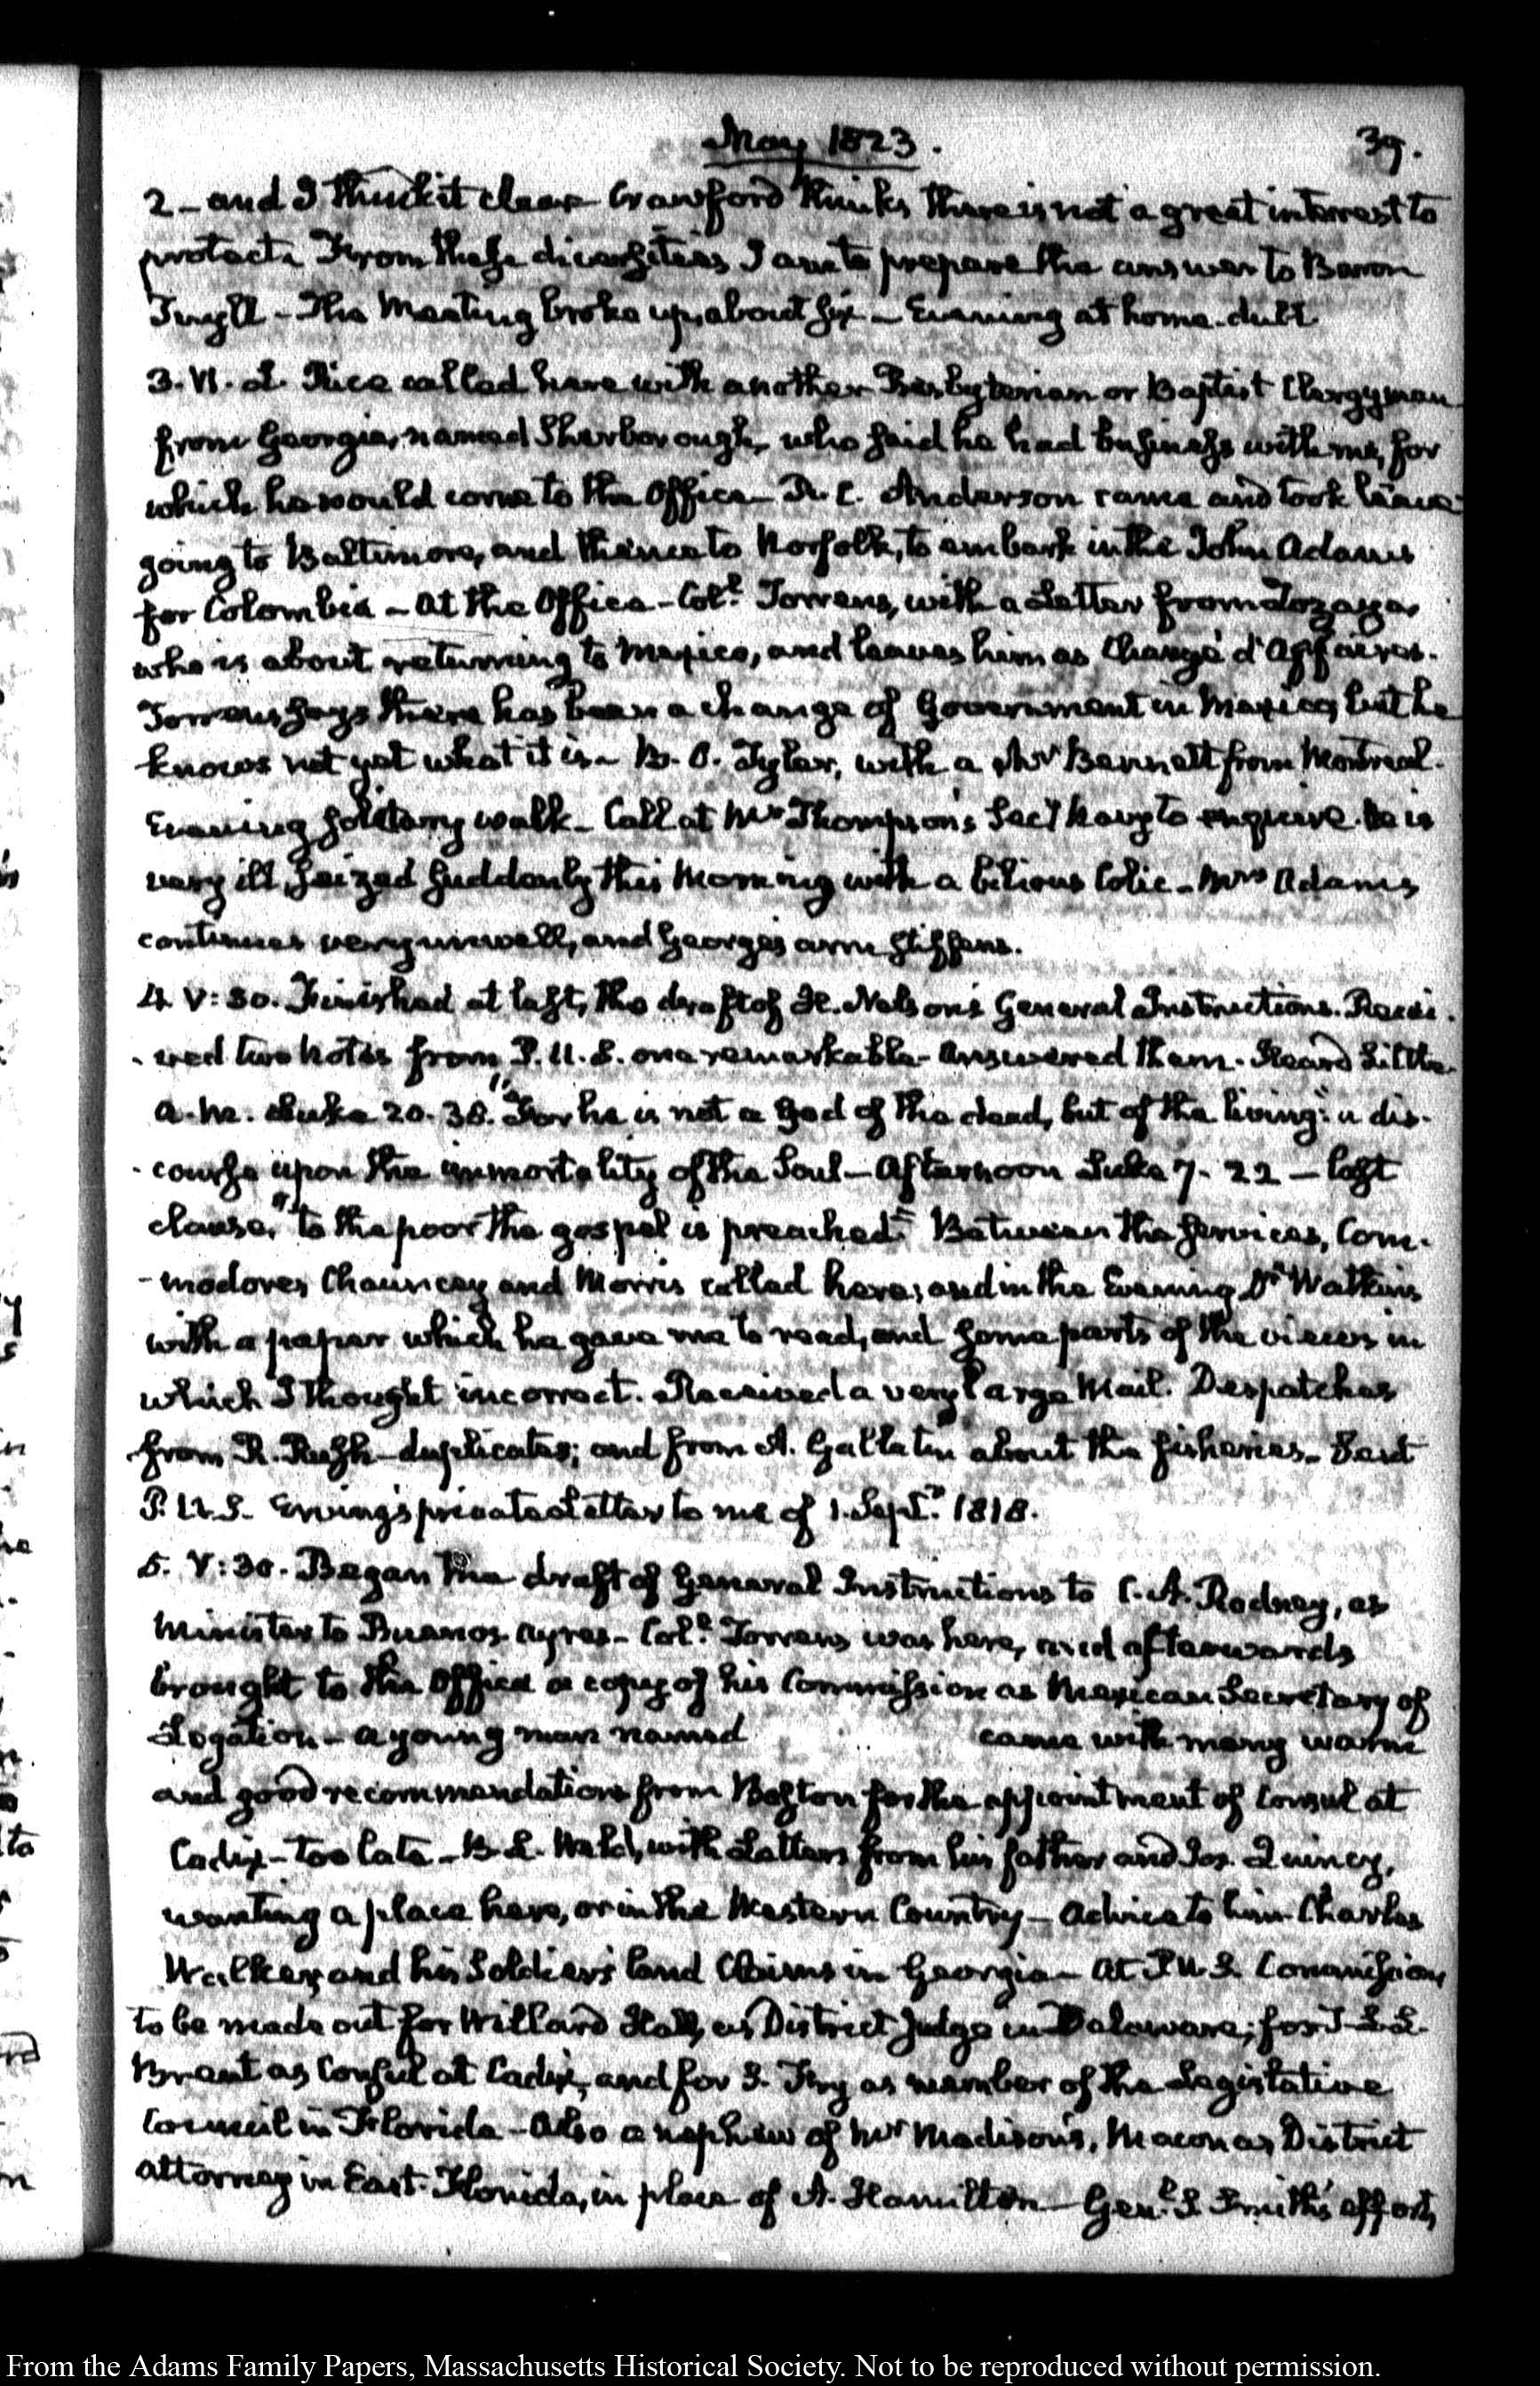 May 1823.
39.
2 – and I think it clear Crawford thinks there is not a great interest to
protect. From these diversities I am to prepare the answer to Baron
Tuyll – The Meeting broke up, about six – Evening at home. dull.
3. VI. L. Rice called here with another Presbyterian or Baptist Clergyman
from Georgia, named Sherborough, who said he had business with me, for
which he would come to the Office – R. C. Anderson came and took leave
going to Baltimore, and thence to Norfolk, to embark in the John Adams
for Colombia – At the Office – Coll. Torrens, with a Letter from Zozaya,
who is about returning to Mexico, and leaves him as Chargé d'Affaires.
Torrens says there has been a change of Government in Mexico, but he
knows not yet what it is – B. O. Tyler, with a Mr Bennett from Montreal.
Evening solitary walk – Call at Mr Thompson's Secy Navy to enquire. He is
very ill, seized suddenly this Morning with a bilious Colic – Mrs Adams
continues very unwell, and George's arm stiffens.
4. V:30. Finished at last, the draft of H. Nelson's General Instructions. Recei-
-ved two Notes from P.U.S. one remarkable – Answered them – Heard Little.
A.M. Luke 20. 38. "For he is not a God of the dead, but of the living": a dis-
-course upon the immortality of the Soul – Afternoon Luke 7. 22 – last
clause, "to the poor the gospel is preached" Between the services, Com-
-modores Chauncey and Morris called here; and in the Evening Dr Watkins
with a paper which he gave me to read, and some parts of the views in
which I thought incorrect. Received a very large Mail. Despatches
from R. Rush – duplicates; and from A. Gallatin about the fisheries – Sent
P.U.S. Erving's private Letter to me of 1. Septr. 1818.
5. V:30. Began the draft of General Instructions to C. A. Rodney, as
Minister to Buenos Ayres – Coll. Torrens was here, and afterwards
brought to the Office a copy of his Commission as Mexican Secretary of
Legation – A young man named came with many warm
and good recommendations from Boston for the appointment of Consul at
Cadiz – too late – B. L. Weld, with Letters from his father and Jos. Quincy,
wanting a place here, or in the Western Country – Advice to him – Charles
Walker, and his Soldiers' land Claims in Georgia – At P.U.S. Commissions
to be made out for Willard Hall, as District Judge in Delaware; for T L L
Brent as Consul at Cadiz, and for S. Fry as member of the Legislative
Council in Florida – Also a nephew of Mr Madison's, Macon as District
Attorney in East-Florida, in place of A. Hamilton – Genl. S Smith's efforts
From the Adams Family Papers, Massachusetts Historical Society. Not to be reproduced without permission.